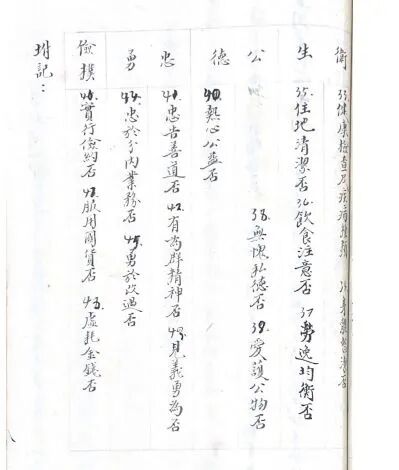 衛 健康檢查及疾病
生 35.住地清潔否 36.飲食注意否 37.勞逸均衡否
公 38.無愧私德否 39.愛護公物否
德 40.熱心公益否
忠 41.忠告善道否 42.有為群精神否 43.見義勇為否
勇 44.忠於分內業務否 45.勇於改過否
儉樸 46.實行儉約否 47.服用國貨否 48.虛耗金錢否
坿記：